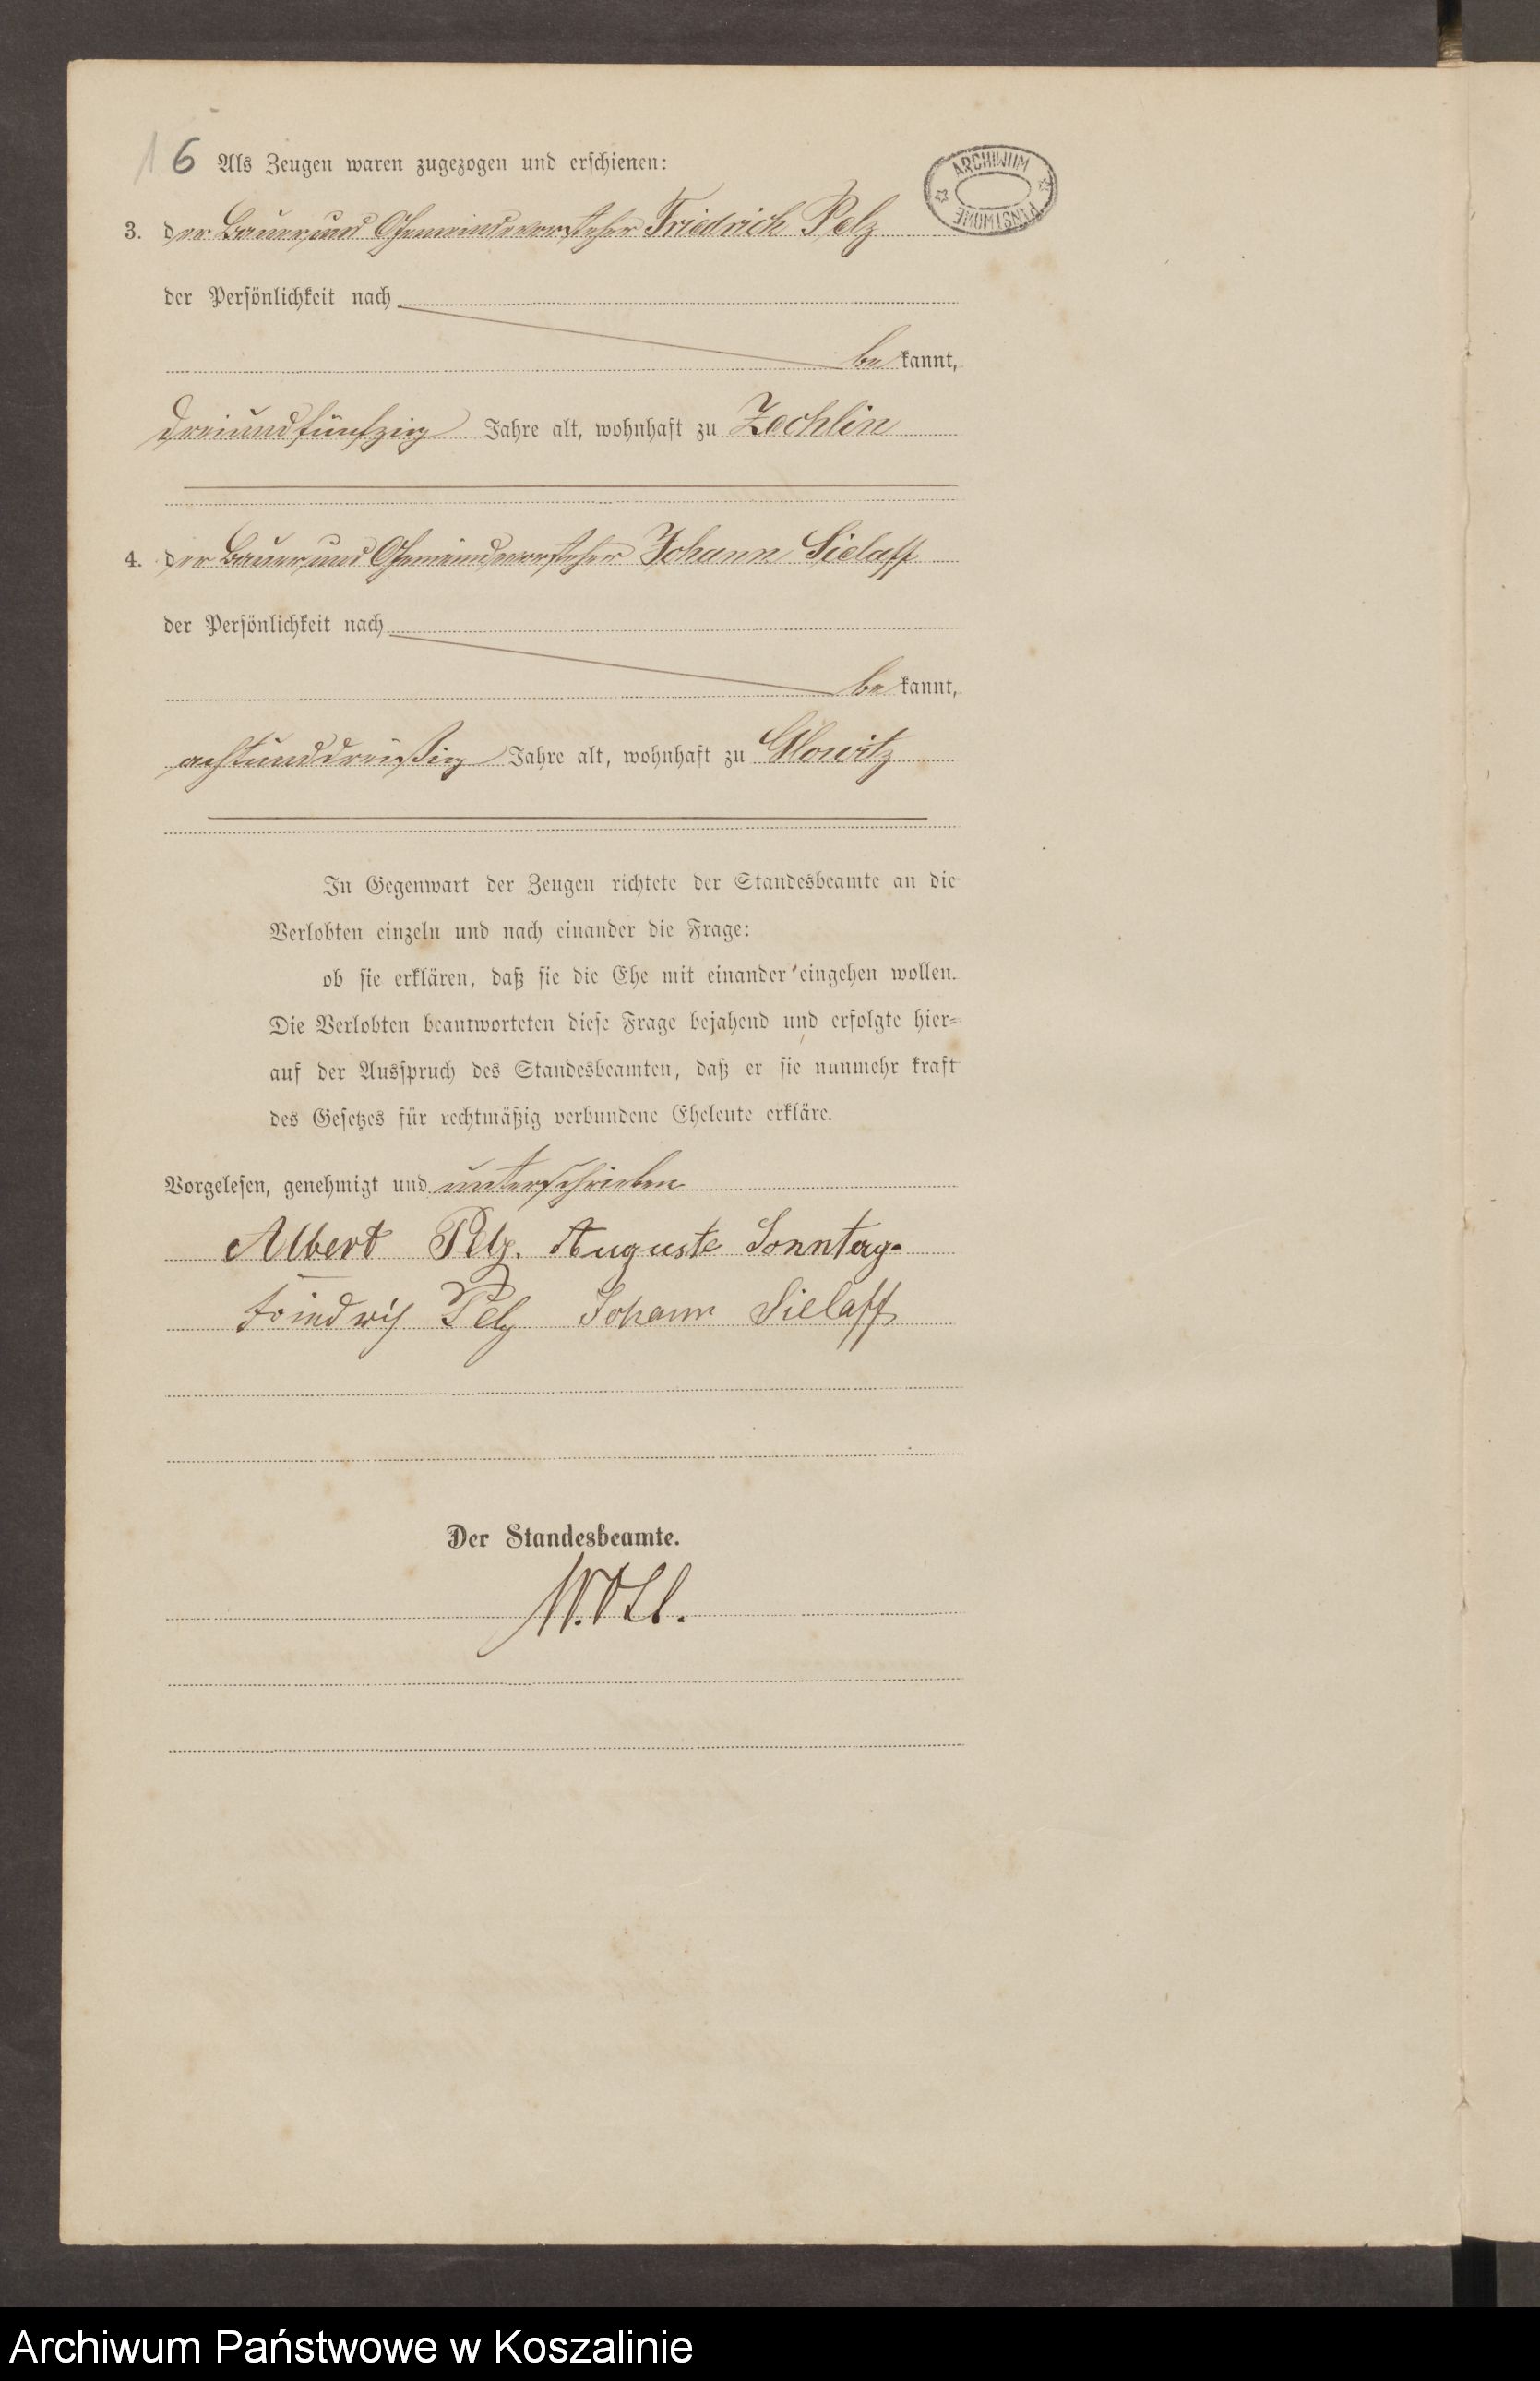 16 Als Zeugen waren zugezogen und erschienen:
ARCHIWUM PAŃSTWOWE
3. der Bauer und Gemeindevorsteher Friedrich Pelz
der Persönlichkeit nach
be kannt,
dreiundfünfzig Jahre alt, wohnhaft zu Zechlin
4. der Bauer und Gemeindevorsteher Johann Sielaff
der Persönlichkeit nach
be kannt,
achtunddreißig Jahre alt, wohnhaft zu Glowitz
In Gegenwart der Zeugen richtete der Standesbeamte an die
Verlobten einzeln und nach einander die Frage:
ob sie erklären, daß sie die Ehe mit einander eingehen wollen.
Die Verlobten beantworteten diese Frage bejahend und erfolgte hier-
auf der Ausspruch des Standesbeamten, daß er sie nunmehr kraft
des Gesetzes für rechtmäßig verbundene Eheleute erkläre.
Vorgelesen, genehmigt und unterschrieben
Albert Pelz. Auguste Sonntag.
Friedrich Pelz Johann Sielaff
Der Standesbeamte.
Archiwum Państwowe w Koszalinie